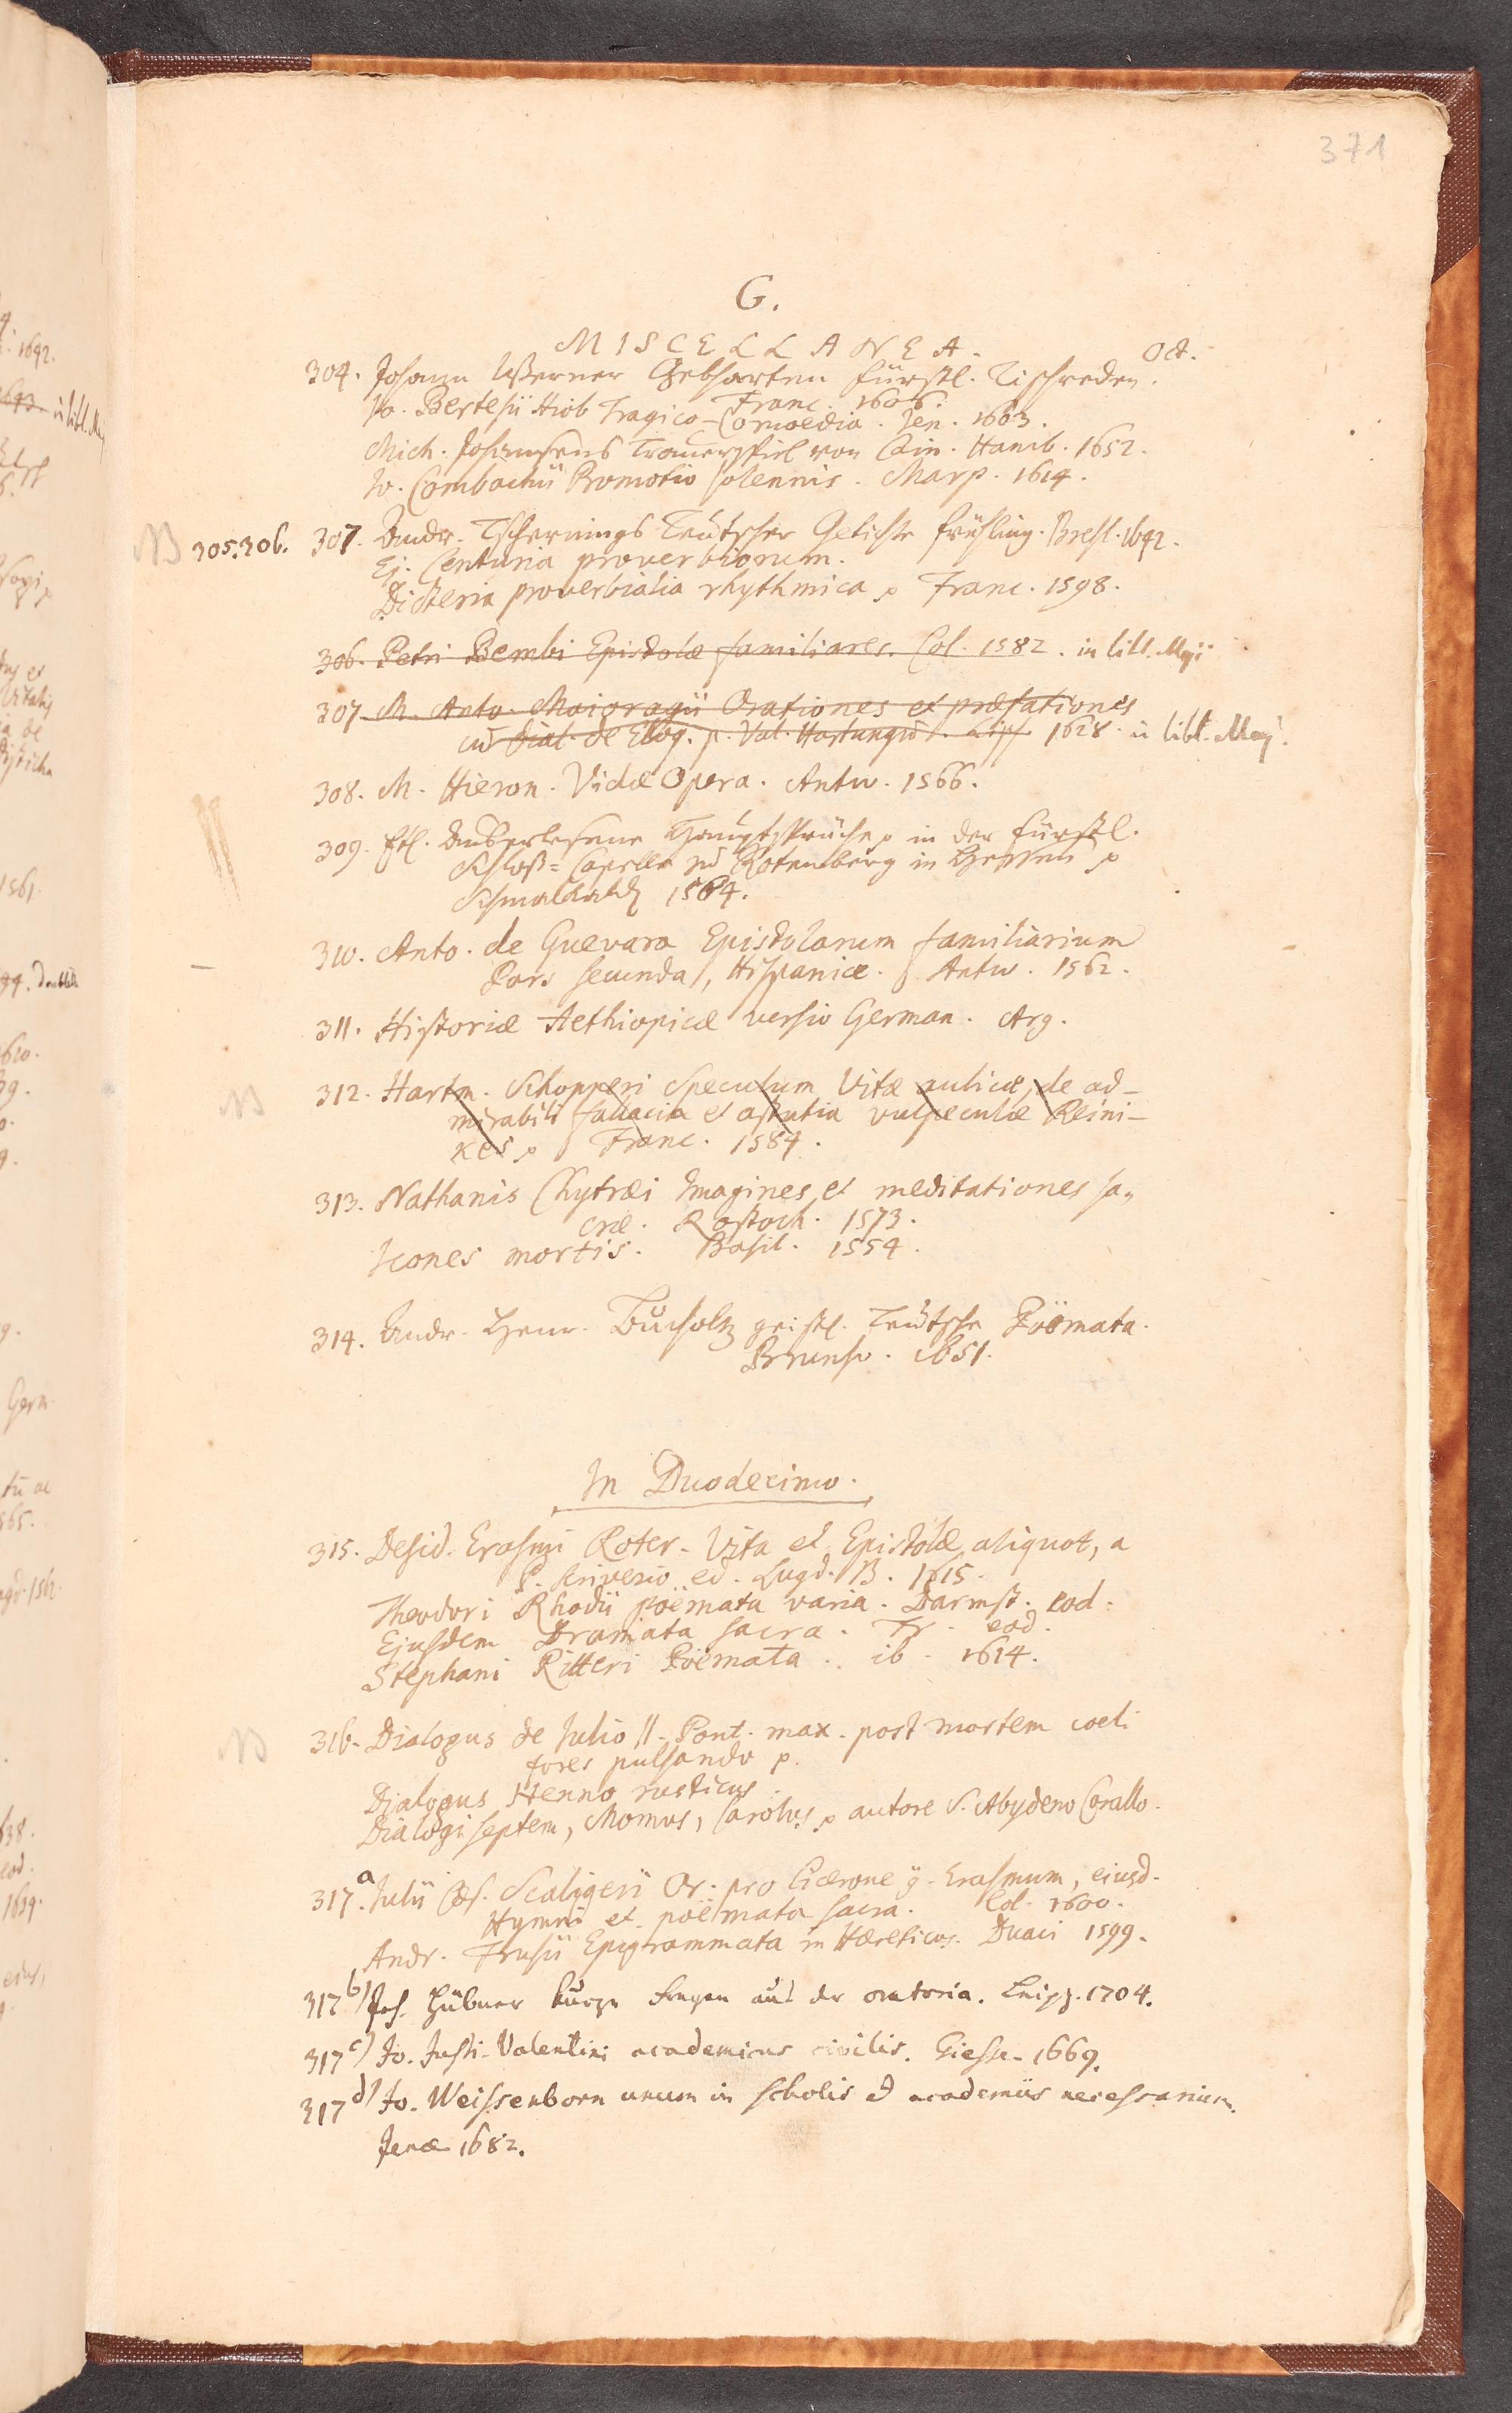 371
G.
MISCELLANEA. Oct.
304. Johann Werner Gebharten fürstl. Tischreden.
Franc. 1606.
Jo. Bertesii Hiob Tragico-Comoedia. Jen. 1603.
Mich. Johansens Trauerspiel von Cain. Hamb. 1652.
Jo. Combachii Promotio solennis. Marp. 1614.
NB 305.306. 307. Andr. Tschernings Teutscher Getichte Frühling. Bresl. 1642.
Ej. Centuria proverbiorum.
Dicteria proverbialia rhythmica p Franc. 1598.
306. Petri Bembi Epistolæ familiares. Col. 1582. in libl. Maji
307. M. Anto. Maioragii Orationes et præfationes
cū Dial. de Eloq. p. Val. Hartungū. Lips. 1628. in libl. Maj.
308. M. Hieron. Vidæ Opera. Antw. 1566.
309. Etl. Außerlesene Hauptsprüche p in der Fürstl.
Schloß=Capelle zu Rotenberg in Hessen p
Schmalkald 1564.
310. Anto. de Guevara Epistolarum familiarium
Pars secunda, Hispanice. Antw. 1562.
311. Historiæ Aethiopicæ versio German. Arg.
NB 312. Hartm. Schopperi Speculum Vitæ aulicæ, de ad-
mirabili fallacia et astutia vulpeculæ Reini-
kes p Franc. 1584.
313. Nathanis Chytræi Imagines et meditationes sa-
cræ. Rostoch. 1573.
Icones mortis. Basil. 1554.
314. Andr. Henr. Bucholtz geistl. Teutsche Poëmata.
Brunsw. 1651.
In Duodecimo.
315. Desid. Erasmi Roter. Vita et Epistolæ aliquot, a
P. Scriverio ed. Lugd. B. 1615.
Theodori Rhodii poëmata varia. Darmst. eod.
Ejusdem Dramata sacra. Fr. eod.
Stephani Ritteri Poëmata. ib. 1614.
NB 316. Dialogus de Julio II. Pont. max. post mortem coeli
fores pulsando p.
Dialogus Henno rusticus.
Dialogi septem, Momus, Carolus p autore S. Abydeno Corallo.
317.a Julii Cæs. Scaligeri Or. pro Cicerone g. Erasmum, eiusd.
Hymni et poëmata sacra. Col. 1600.
Andr. Frusii Epigrammata in Hæreticos. Duaci 1599.
317 b) Joh. Hübner kurze Fragen aus der oratoria. Leipz. 1704.
317 c) Jo. Justi Valentini academicus civilis. Giess. 1669.
317 d) Jo. Weissenborn unum in scholis et academiis necessarium.
Jenæ 1682.